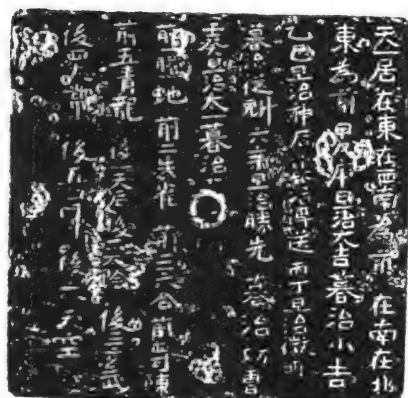 天居在東在西南為前 在南在北
東為前 旦治大吉暮治小吉
乙己旦治神后暮治傳送丙丁旦治徵明
暮治從魁六辛旦治勝先 暮治功曹
旦治太一暮治
前一螣蛇 前二朱雀 前三六合 前四勾陳
前五青龍 後一天后 後二太陰 後三玄武
後四太常 後五白虎 後六天空